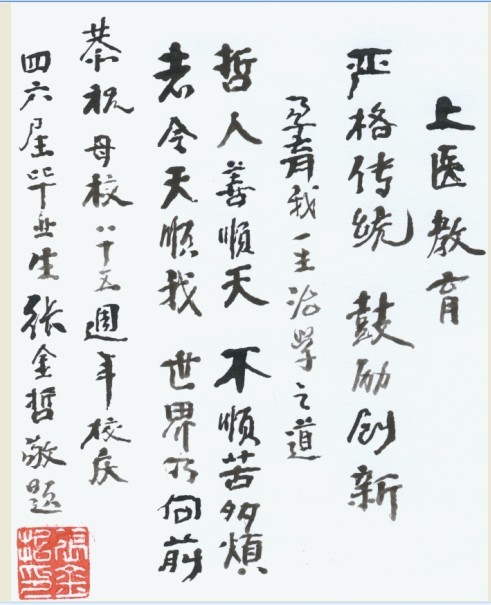 上医教育
严格传统 鼓励创新
孕育我一生治学之道
哲人善順天 不順苦多煩
若令天順我 世界乃向前
恭祝母校八十五週年校庆
四六届毕业生张金哲敬题
张金哲印